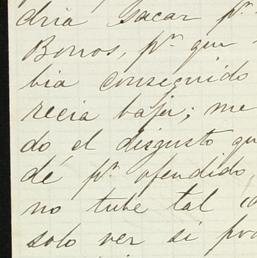 dria sacar pr.
Borros, pr. que
bia conseguido
recia baja; me
do el disgusto qu
dé pr. ofendido,
no tube tal co
solo ver si pro